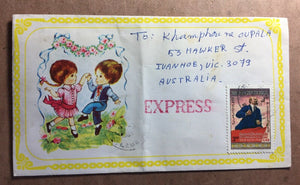 To: Khamphouna OUPALA
53 HAWKER St.
IVANHOE, VIC. 3079
AUSTRALIA.
EXPRESS